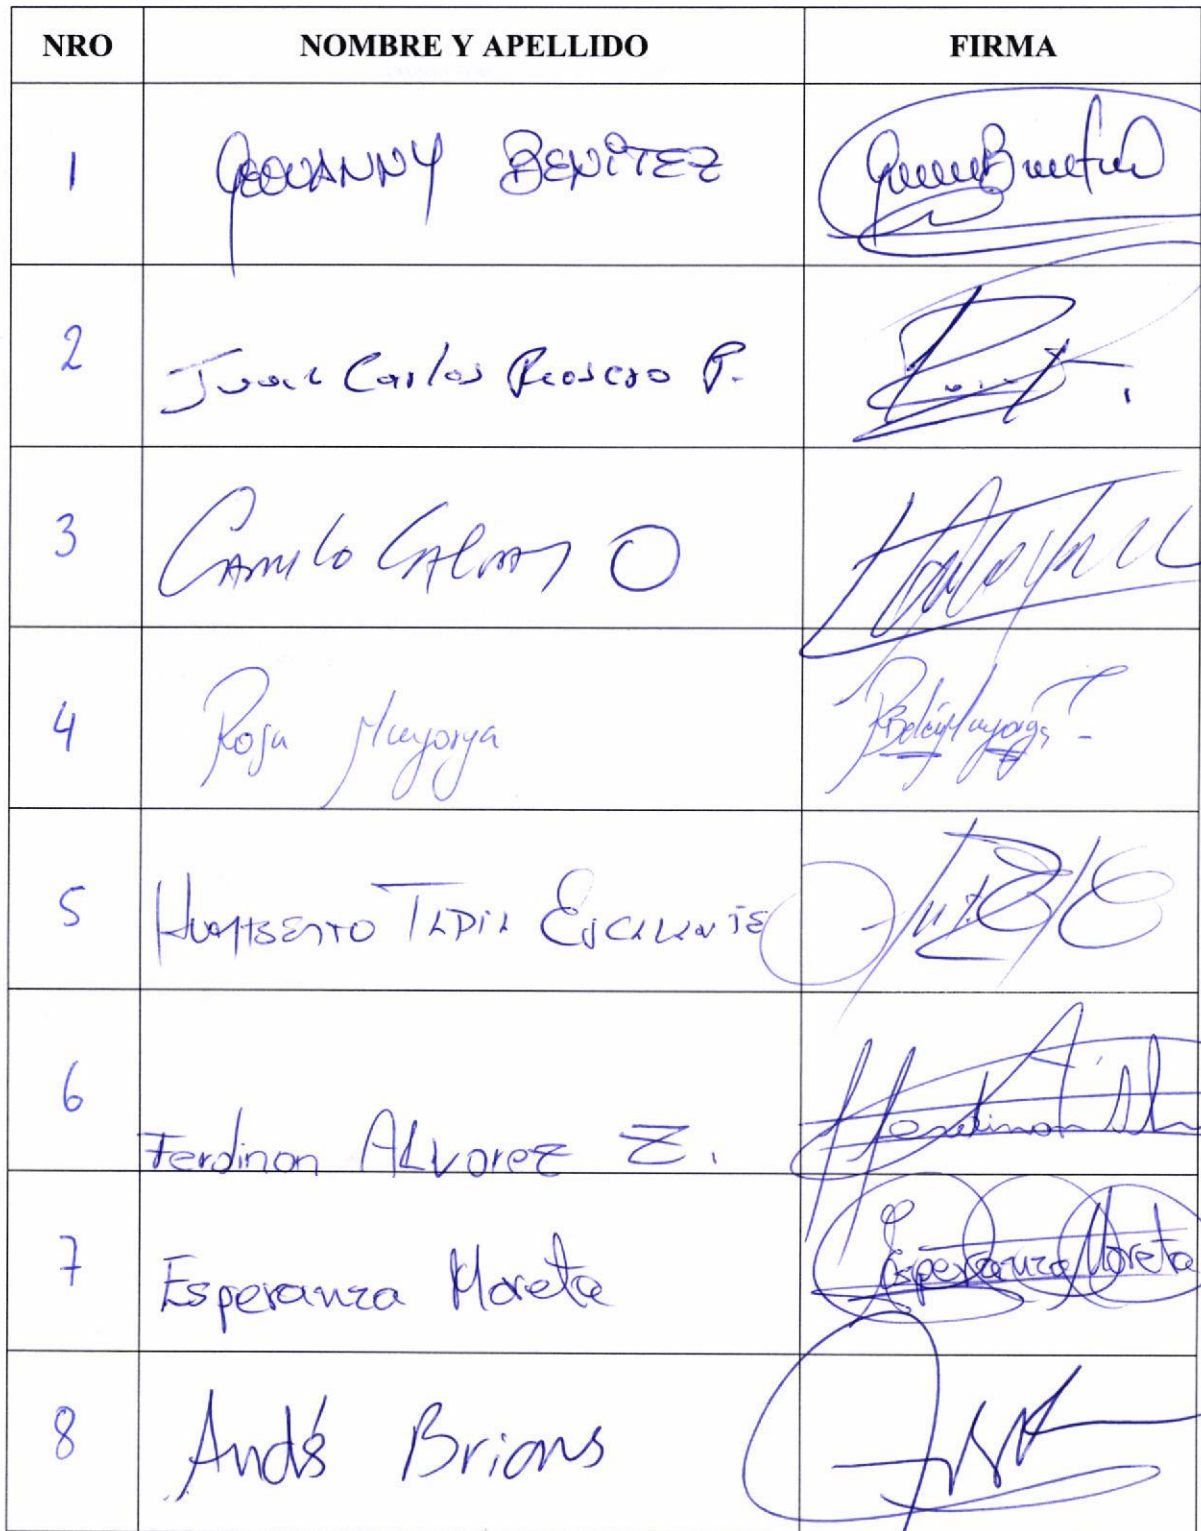 NRO NOMBRE Y APELLIDO FIRMA
1 GEOVANNY BENITEZ
2 Juan Carlos P.
3 CAMILO O
4 Rosa Mayorga Belén Mayorga
5 HUMBERTO TAPIA ESCALANTE
6 Ferdinan ALvarez Z. Ferdinan
7 Esperanza Moreta Esperanza Moreta
8 Andrés Brions